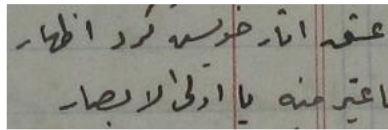 عشق اثار خویش کرد اظهار
اعتبر منه یا اولی الابصار